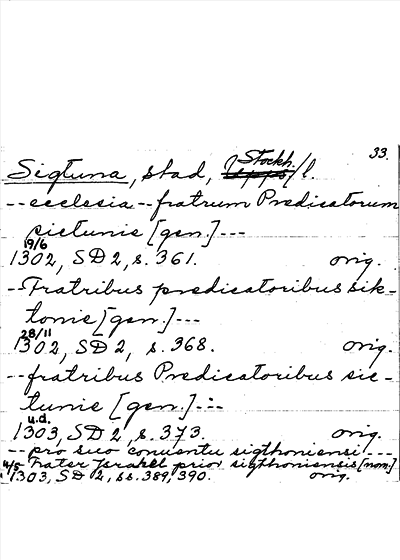 33.
Sigtuna, stad, Stockh. l.
-- ecclesia -- fratrum Predicatorum
sictunie [gen.] ---
19/6
1302, SD 2, s. 361. orig.
-- Fratribus predicatoribus sik-
tonie [gen.] ---
28/11
1302, SD 2, s. 368. orig.
-- fratribus Predicatoribus sic-
tunie [gen.] ---
u.d.
1303, SD 2, s. 373. orig.
-- pro suo conuentu sigthoniensi ---
-- Frater Israhel prior sigthoniensis [nom.]
4/5 1303, SD 2, ss. 389, 390. orig.